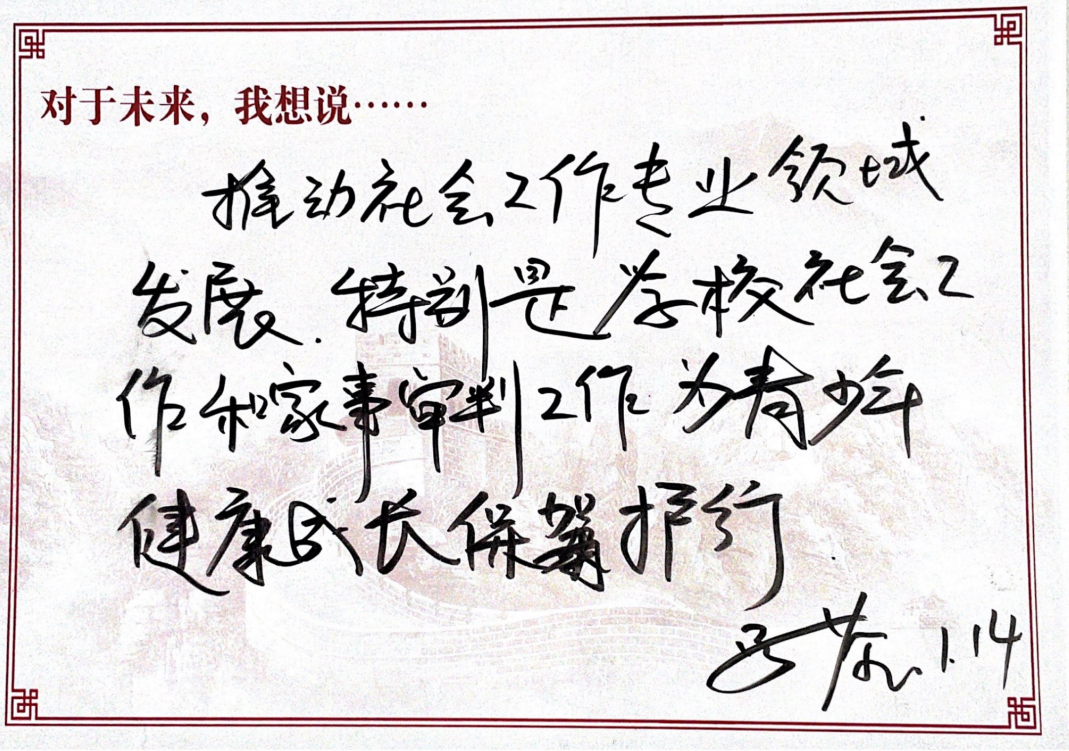 对于未来，我想说……
推动社会工作专业领域
发展.特别是学校社会工
作和家事审判工作为青少年
健康成长保驾护行
1.14